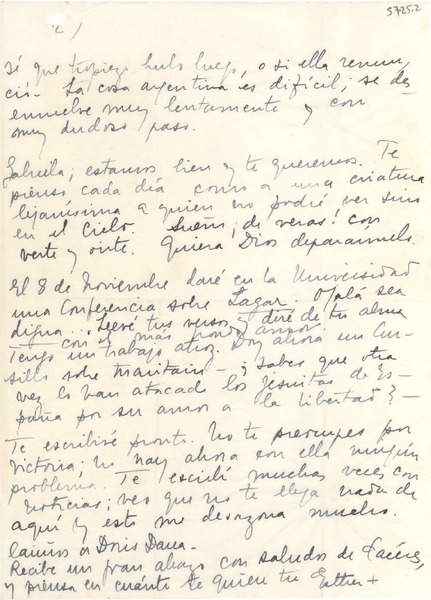 5725.2
2/
sé que tropiezo hubo luego, o si ella renun
ció. La cosa argentina es difícil; se des
envuelve muy lentamente y con
muy dudoso paso.
Gabriela; estamos bien y te queremos. Te
pienso cada día como a una criatura
lejanísima a quien no podré ver sino
en el cielo. Sueño; ¡de veras! con
verte y oirte. Quiera Dios deparármelo.
El 8 de Noviembre daré en la Universidad
una Conferencia sobre Lagar. Ojalá sea
digna... Leeré tus versos y diré de tu alma
con el más hondo amor.
Tengo un trabajo atroz. Doy ahora un Cur-
sillo sobre Maritain - ¿Sabes que otra
vez lo han atacado los Jesuitas de Es-
paña por su amor a la libertad? -
Te escribiré pronto. No te preocupes por
Victoria; no hay ahora con ella ningún
problema. Te escribí muchas veces con
noticias; veo que no te llega nada de
aquí y esto me desazona mucho.
Cariños a Doris Dana.
Recibe un gran abrazo con saludos de Cáceres,
y piensa en cuánto te quiere tu Esther +